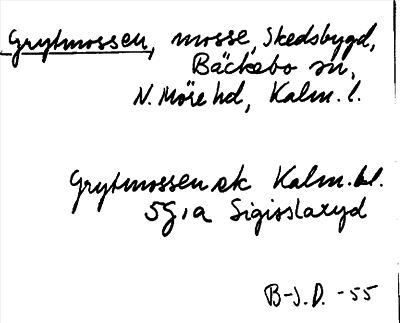 Grytmossen, mosse, Skedsbygd,
Bäckebo sn,
N. Möre hd, Kalm. l.
Grytmossen ek Kalm. bl.
5G, a Sigisslaryd
B-J.D. -55